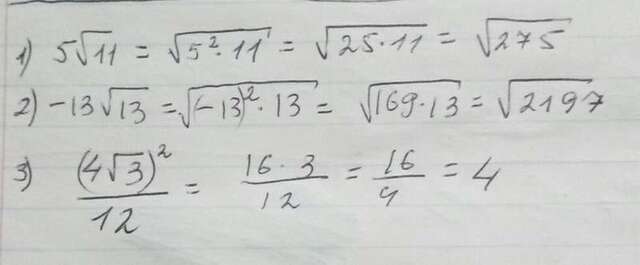 1) 5√11 = √(5²·11) = √(25·11) = √275
2) -13√13 = √((-13)²·13) = √(169·13) = √2197
3) (4√3)²/12 = 16·3/12 = 16/4 = 4